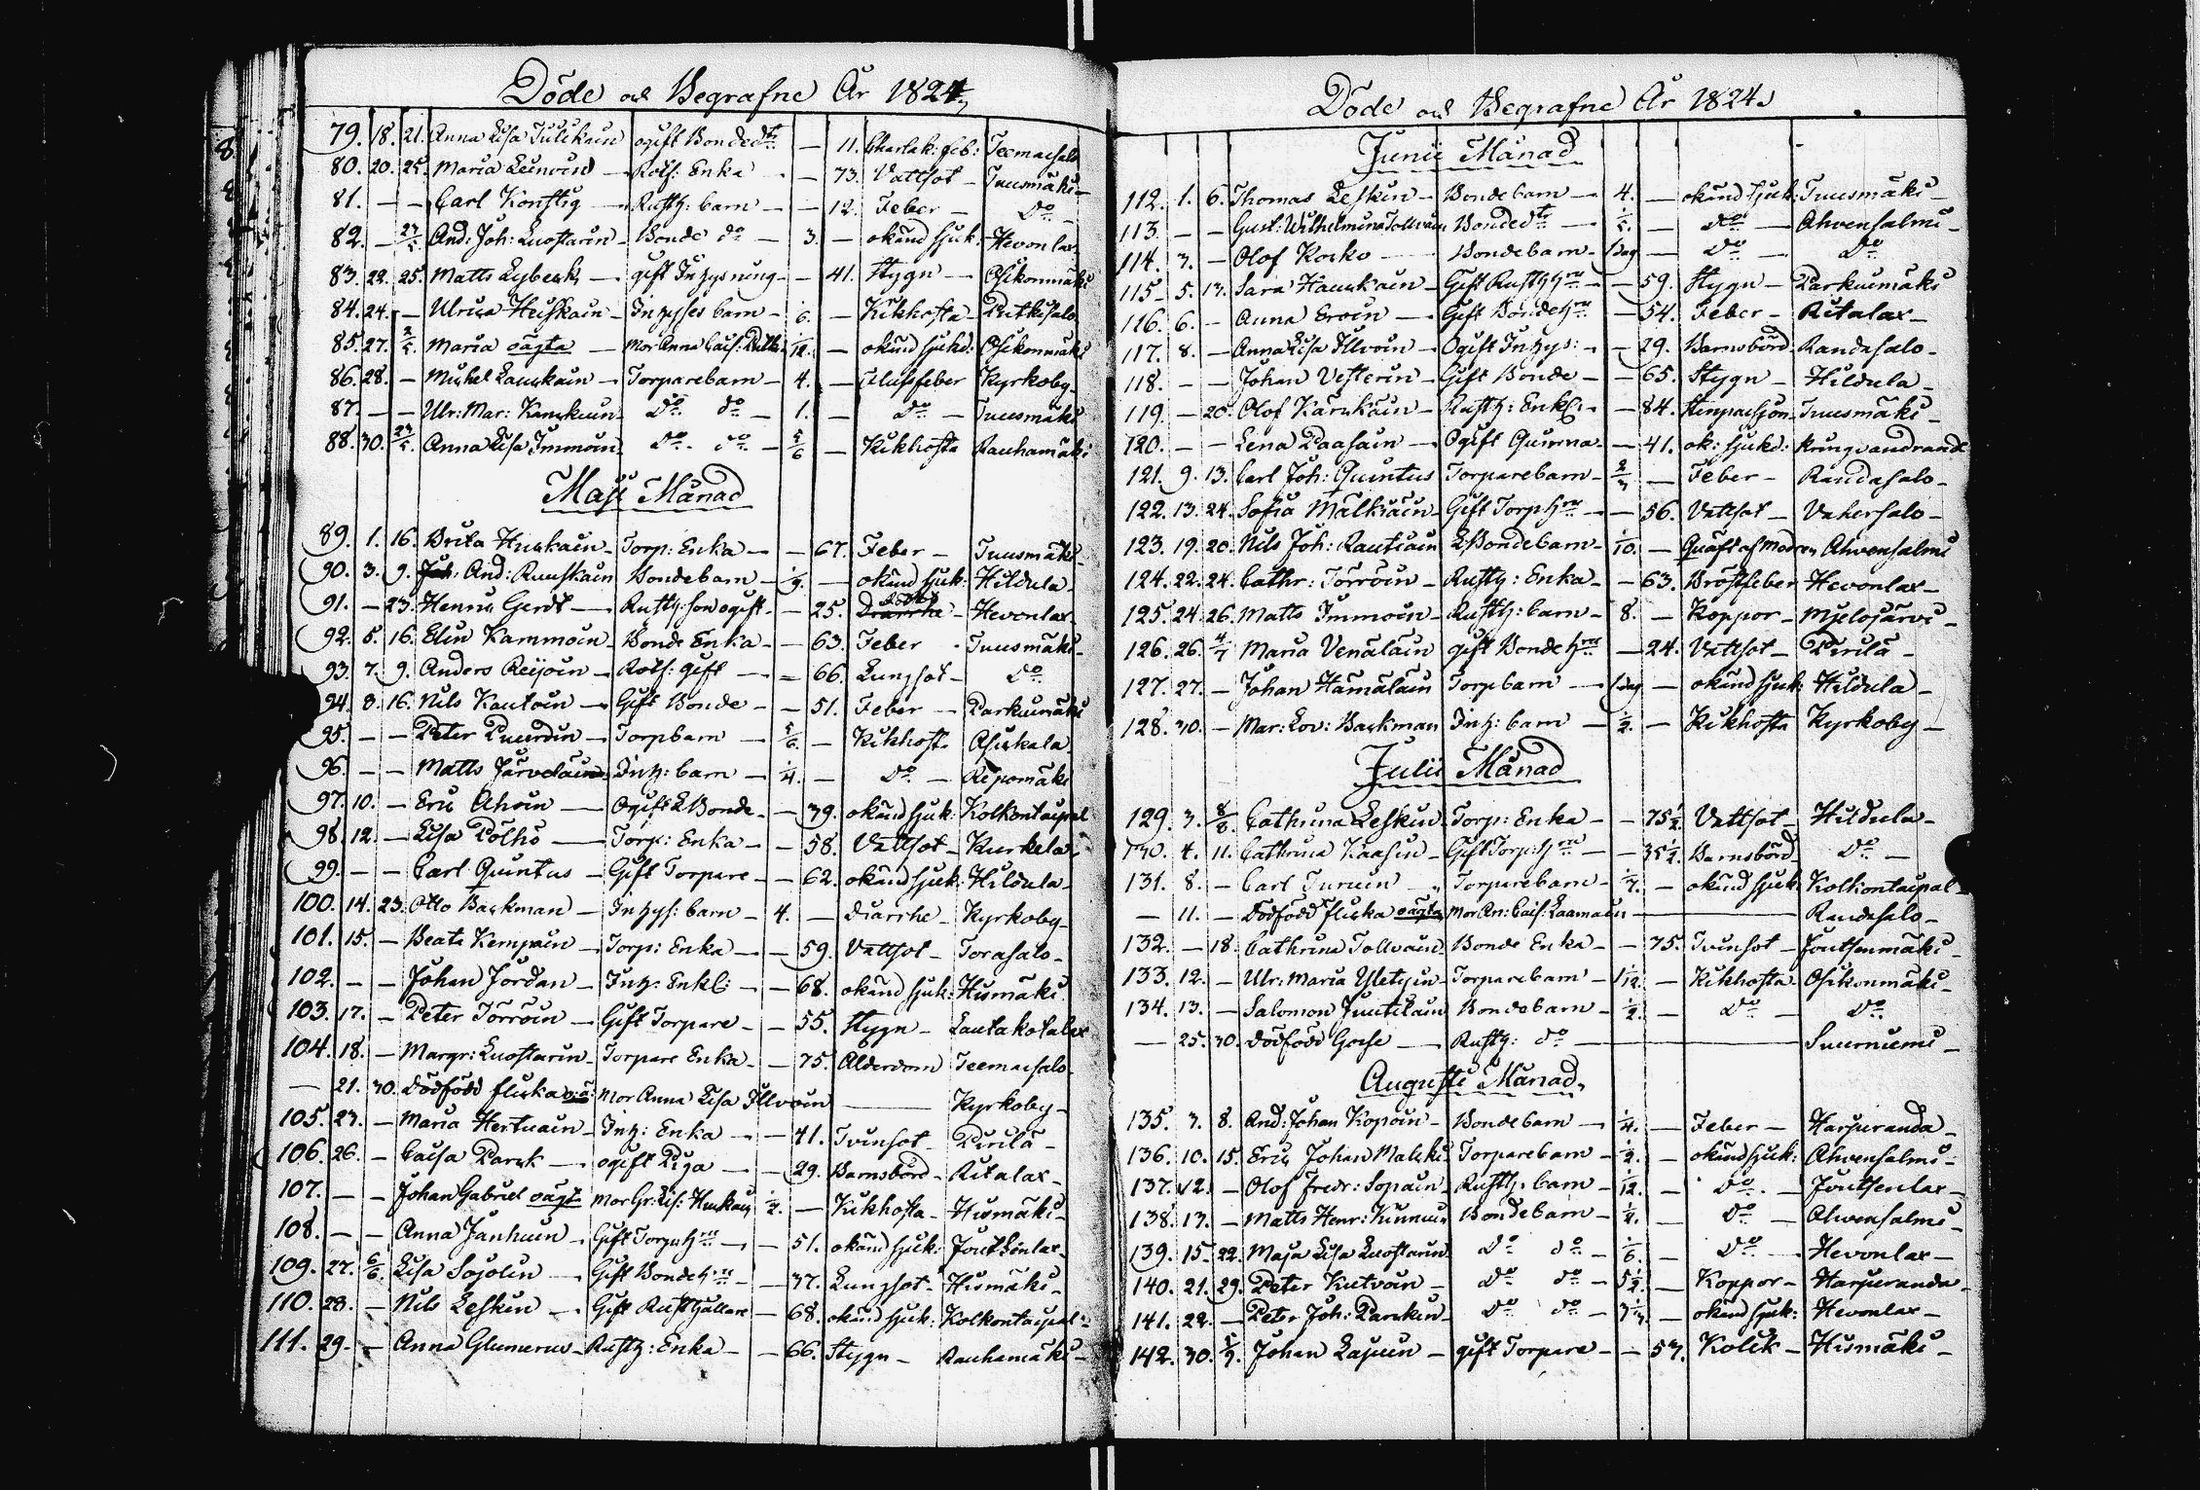 Döde och Begrafne År 1824.
79. 18. 21. Anna Lisa Tulikain ogift Bondedtr — 11. Charlak: feb: Teemasalo
80. 20. 25. Maria Leinoin — Rotf: Enka — 73. Vattsot — Tuusmäki —
81. — — Carl Konstig — Rusth: barn — — 12. Feber — Do —
82. — 23/5 And: Joh: Luostarin — Bonde do — 3. — okänd sjuk: Hevonlax
83. 22. 25. Matts Lyback — gift Inhysning — — 41. Stygn — Osikonmäki
84. 24. — Ulrica Heiskain — Inhyses barn — 1/6. — Kikhosta — Putkisalo
85. 27. 2/5. Maria oägta — Mor Anna Cais: — 1/12. — okänd sjukd: Osikonmäki
86. 28. — Michel Lauskain — Torparebarn — 4. — Flussfeber Kyrkoby —
87. — — Ulr: Mar: Do do — 1. — Do — Tuusmäki
88. 30. 23/5. Anna Lisa Immoin Do do — 5/6 — Kikhosta Rauhamäki
Maji Månad
89. 1. 16. Brita Huskain — Torp: Enka — — 67. Feber — Tuusmäki —
90. 3. 9. Joh: And: Ruuskain Bondebarn — 1/9. — okänd sjuk: Hildula —
91. — 23. Henric Gerdt — Rusth: son ogift — — 25. Diarrhe — Hevonlax
92. 5. 16. Elin Kammoin — Bonde Enka — — 63. Feber — Tuusmäki —
93. 7. 9. Anders Reijoin — Rotf: gift — — 66. Lungsot — Do —
94. 8. 16. Nils Kautoin — Gift Bonde — — 51. Feber — Parkumäki
95. — — Peter — Torpbarn — 5/6. — Kikhosta Asikala
96. — — Matts Järveläin — Inh: barn — 1/4. — Do — Repomäki
97. 10. — Eric Ahoin — Ogift Bonde — — 39. okänd sjuk: Kolkontaipal
98. 12. — Lisa Pölhö — Torp: Enka — — 58. Vattsot — Kurkela
99. — — Carl Quintus — Gift Torpare — — 62. okänd sjuk: Hildula —
100. 14. 23. Otto Backman — Inhys: barn — 4. — diarrhe — Kyrkoby —
101. 15. — Beata Kempain — Torp: Enka — — 59. Vattsot — Torasalo —
102. — — Johan Jordan — Inh: Enkl: — — 68. okänd sjuk: Hismäki
103. 17. — Peter Törröin — Gift Torpare — — 55. Stygn — Lautakotalax
104. 18. — Margr: Luostarin — Torpare Enka — — 75. Alderdom Teemasalo —
— 21. 30. Dödfödd flicka oä: Mor Anna Lisa Illvoin — Kyrkoby —
105. 23. — Maria Hertuain — Inh: Enka — — 41. Tvinsot — Pirilä —
106. 26. — Caisa Parck — ogift Piga — — 29. Barnsbörd — Ritalax —
107. — — Johan Gabriel oägt Mor Gr: Lis: Huskain — Kikhosta — Hismäki —
108. — — Anna Janhuin — Gift Torphru — — 51. okänd sjuk: Joutsenlax —
109. 27. 6/6. Lisa Sojolin — Gift Bondehru — — 37. Lungsot — Hismäki —
110. 28. — Nils Leskin — Gift Rusthållare — 68. okänd sjuk: Kolkontaipal —
111. 29. — Anna Glumerus — Rusth: Enka — — 66. Stygn — Rauhamäki —
Döde och Begrafne År 1824.
Junii Månad
112. 1. 6. Thomas Leskin — Bondebarn — 4. — okänd sjuk: Tuusmäki —
113. — — Gust: Wilhelmina Tollvain Bondedtr — 1/5. — Do — Ahvensalmi —
114. 3. — Olof Korko — Bondebarn — 1 dag — Do — Do
115. 5. 13. Sara Hauskain — Gift Rusthhru — — 59. Stygn — Parkuimäki
116. 6. — Anna Eroin — Gift Bondehru — 54. Feber — Ritalax —
117. 8. — Anna Lisa Illvoin — Ogift Inhys: — — 29. Barnsbörd Randasalo —
118. — — Johan Vesterin — Gift Bonde — — 65. Stygn — Hildula —
119. — 20. Olof Kärckäin — Rusth: Enkl: — — 84. Tuusmäki —
120. — — Lena Paasain — Ogift Quinna — — 41. ok: sjukd: Kringvandrand
121. 9. 13. Carl Joh: Quintus Torparebarn — 2/3 — Feber — Randasalo —
122. 13. 24. Sofia Malkiain — Gift Torphru — — 56. Vattsot — Vahersalo —
123. 19. 20. Nils Joh: Rautiain Bondebarn — 1/10. — Quäft af Modren Ahvensalmi
124. 22. 24. Cathr: Törröin — Rusth: Enka — — 63. Bröstfeber Hevonlax —
125. 24. 26. Matts Immoin — Rusth: barn — 8. — Koppor — Mjelojärvi —
126. 26. 4/7 Maria Venäläin gift Bondehru — 24. Vattsot — Pirilä —
127. 27. — Johan Hämäläin Torpbarn — 1 dag — okänd sjuk: Hildula —
128. 30. — Mar: Lov: Backman Inh: barn — 1/2. — Kikhosta Kyrkoby —
Julii Månad
129. 3. 8/8. Cathrina Leskin Torp: Enka — — 75 1/2. Vattsot — Hildula —
130. 4. 11. Cathrina Kaasin — Gift Torp: hru — — 35 1/2. Barnsbörd Do —
131. 8. — Carl Turuin — Torparebarn — 1/7. — okänd sjuk: Kolkontaipal —
— 11. — Dödfödd flicka oägta Mor An: Cais: Laamain — Randasalo —
132. — 18. Cathrina Tollvain Bonde Enka — — 75. Tvinsot — Joutsenmäki —
133. 12. — Ulr: Maria Torparebarn — 1 1/12. — Kikhosta Osikonmäki —
134. 13. — Salomon Juutilain Bondebarn — 1/2. — Do — Do
— 25. 30. Dödfödd Gosse — Rusth: do — Suurniemi —
Augusti Månad
135. 3. 8. And: Johan Kopoin — Bondebarn — 1/4. — Feber — Harjuranda —
136. 10. 15. Eric Johan Malcki Torparebarn — 1/2. — okänd sjuk: Ahvensalmi —
137. 12. — Olof Fredr: Sopain — Rusth: barn — 1/12. — Do — Joutsenlax —
138. 13. — Matts Henr: Kinnuin Bondebarn — 1/2. — Do — Ahvensalmi —
139. 15. 22. Maja Lisa Luostarin Do do — 1/6. — Do — Hevonlax —
140. 21. 29. Peter Kutvoin — Do do — 5 1/2. — Koppor — Harjuranda —
141. 22. — Peter Joh: Parckin — Do do — — okänd sjuk: Hevonlax —
142. 30. 5/9. Johan Lajuin — gift Torpare — — 57. Kolik — Hismäki —